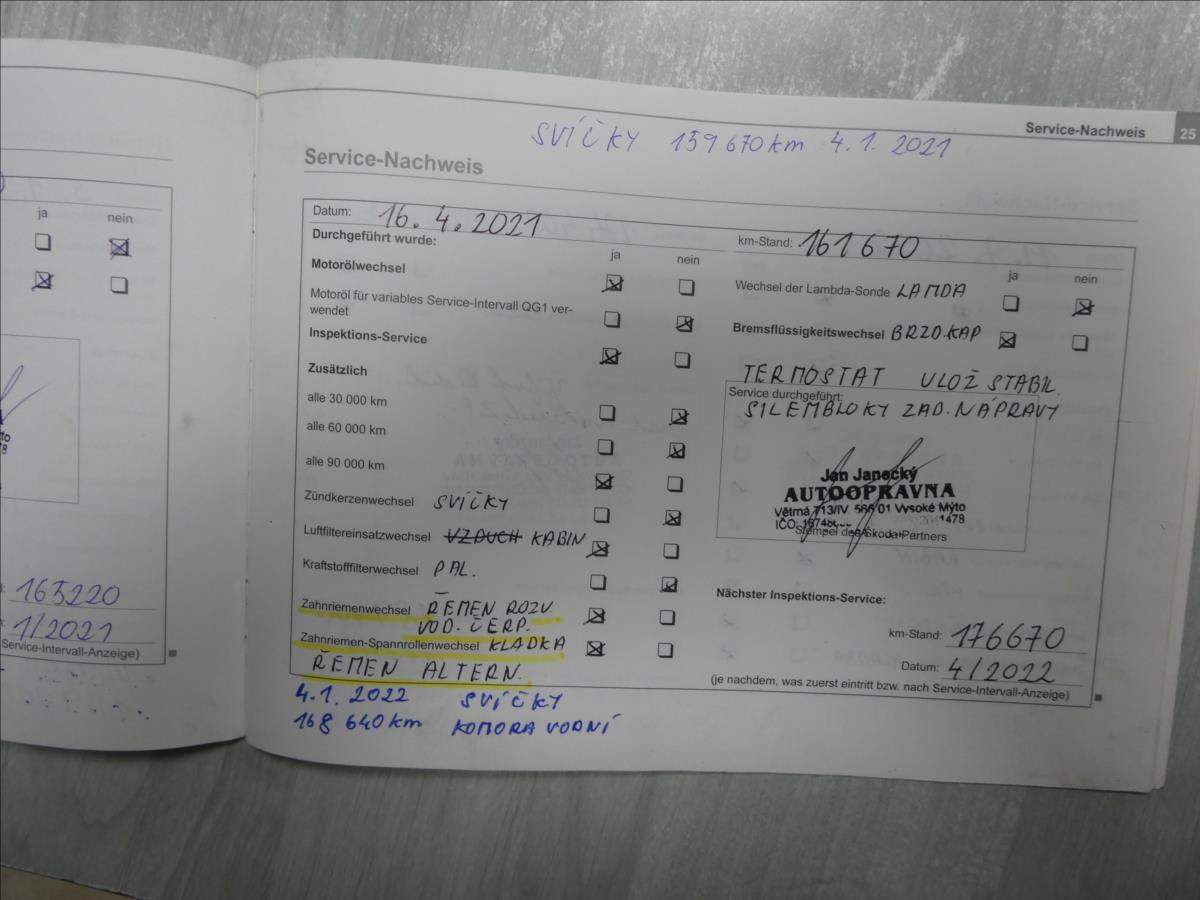 Service-Nachweis 25
SVÍČKY 159670 km 4.1.2021
Service-Nachweis
ja nein
165220
1/2021
Service-Intervall-Anzeige)
Datum: 16.4.2021
km-Stand: 161670
Durchgeführt wurde:
ja nein
Motorölwechsel
Motoröl für variables Service-Intervall QG1 ver-
wendet
Inspektions-Service
Zusätzlich
alle 30 000 km
alle 60 000 km
alle 90 000 km
Zündkerzenwechsel SVÍČKY
Luftfiltereinsatzwechsel VZDUCH KABIN
Kraftstofffilterwechsel PAL.
Zahnriemenwechsel ŘEMEN ROZV.
VOD. ČERP.
Zahnriemen-Spannrollenwechsel KLADKA
ŘEMEN ALTERN.
ja nein
Wechsel der Lambda-Sonde LAMDA
Bremsflüssigkeitswechsel BRZD.KAP
TERMOSTAT VLOŽ STABIL.
Service durchgeführt:
SILEMBLOKY ZAD. NÁPRAVY
Jan Janecký
AUTOOPRAVNA
Větrná 713/IV 566 01 Vysoké Mýto
IČO:
Stempel des Škoda-Partners
Nächster Inspektions-Service:
km-Stand: 176670
Datum: 4/2022
(je nachdem, was zuerst eintritt bzw. nach Service-Intervall-Anzeige)
4.1.2022 SVÍČKY
168 640 km KOMORA VODNÍ